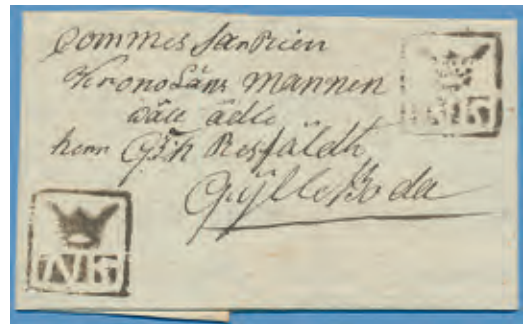 Commes Sarvicen
Krono Läns mannen
wäll ädle
herr Resfäldt
Gylleboda
NK
NK